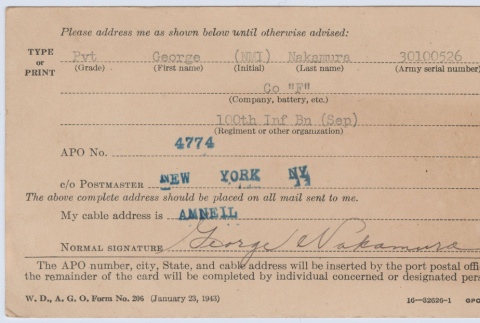 Please address me as shown below until otherwise advised:
TYPE or PRINT
Pvt George (NMI) Nakamura 30100526
(Grade) (First name) (Initial) (Last name) (Army serial number)
Co "F"
(Company, battery, etc.)
100th Inf Bn (Sep)
(Regiment or other organization)
APO No. 4774
c/o Postmaster NEW YORK NY
The above complete address should be placed on all mail sent to me.
My cable address is AMNEIL
Normal signature George Nakamura
The APO number, city, State, and cable address will be inserted by the port postal offi
the remainder of the card will be completed by individual concerned or designated pers
W. D., A. G. O. Form No. 206 (January 23, 1943) 16—32626-1 GPO